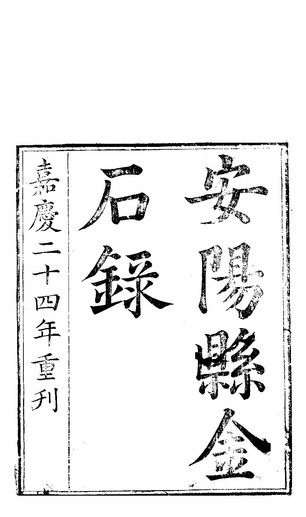 安陽縣金
石錄
嘉慶二十四年重刊